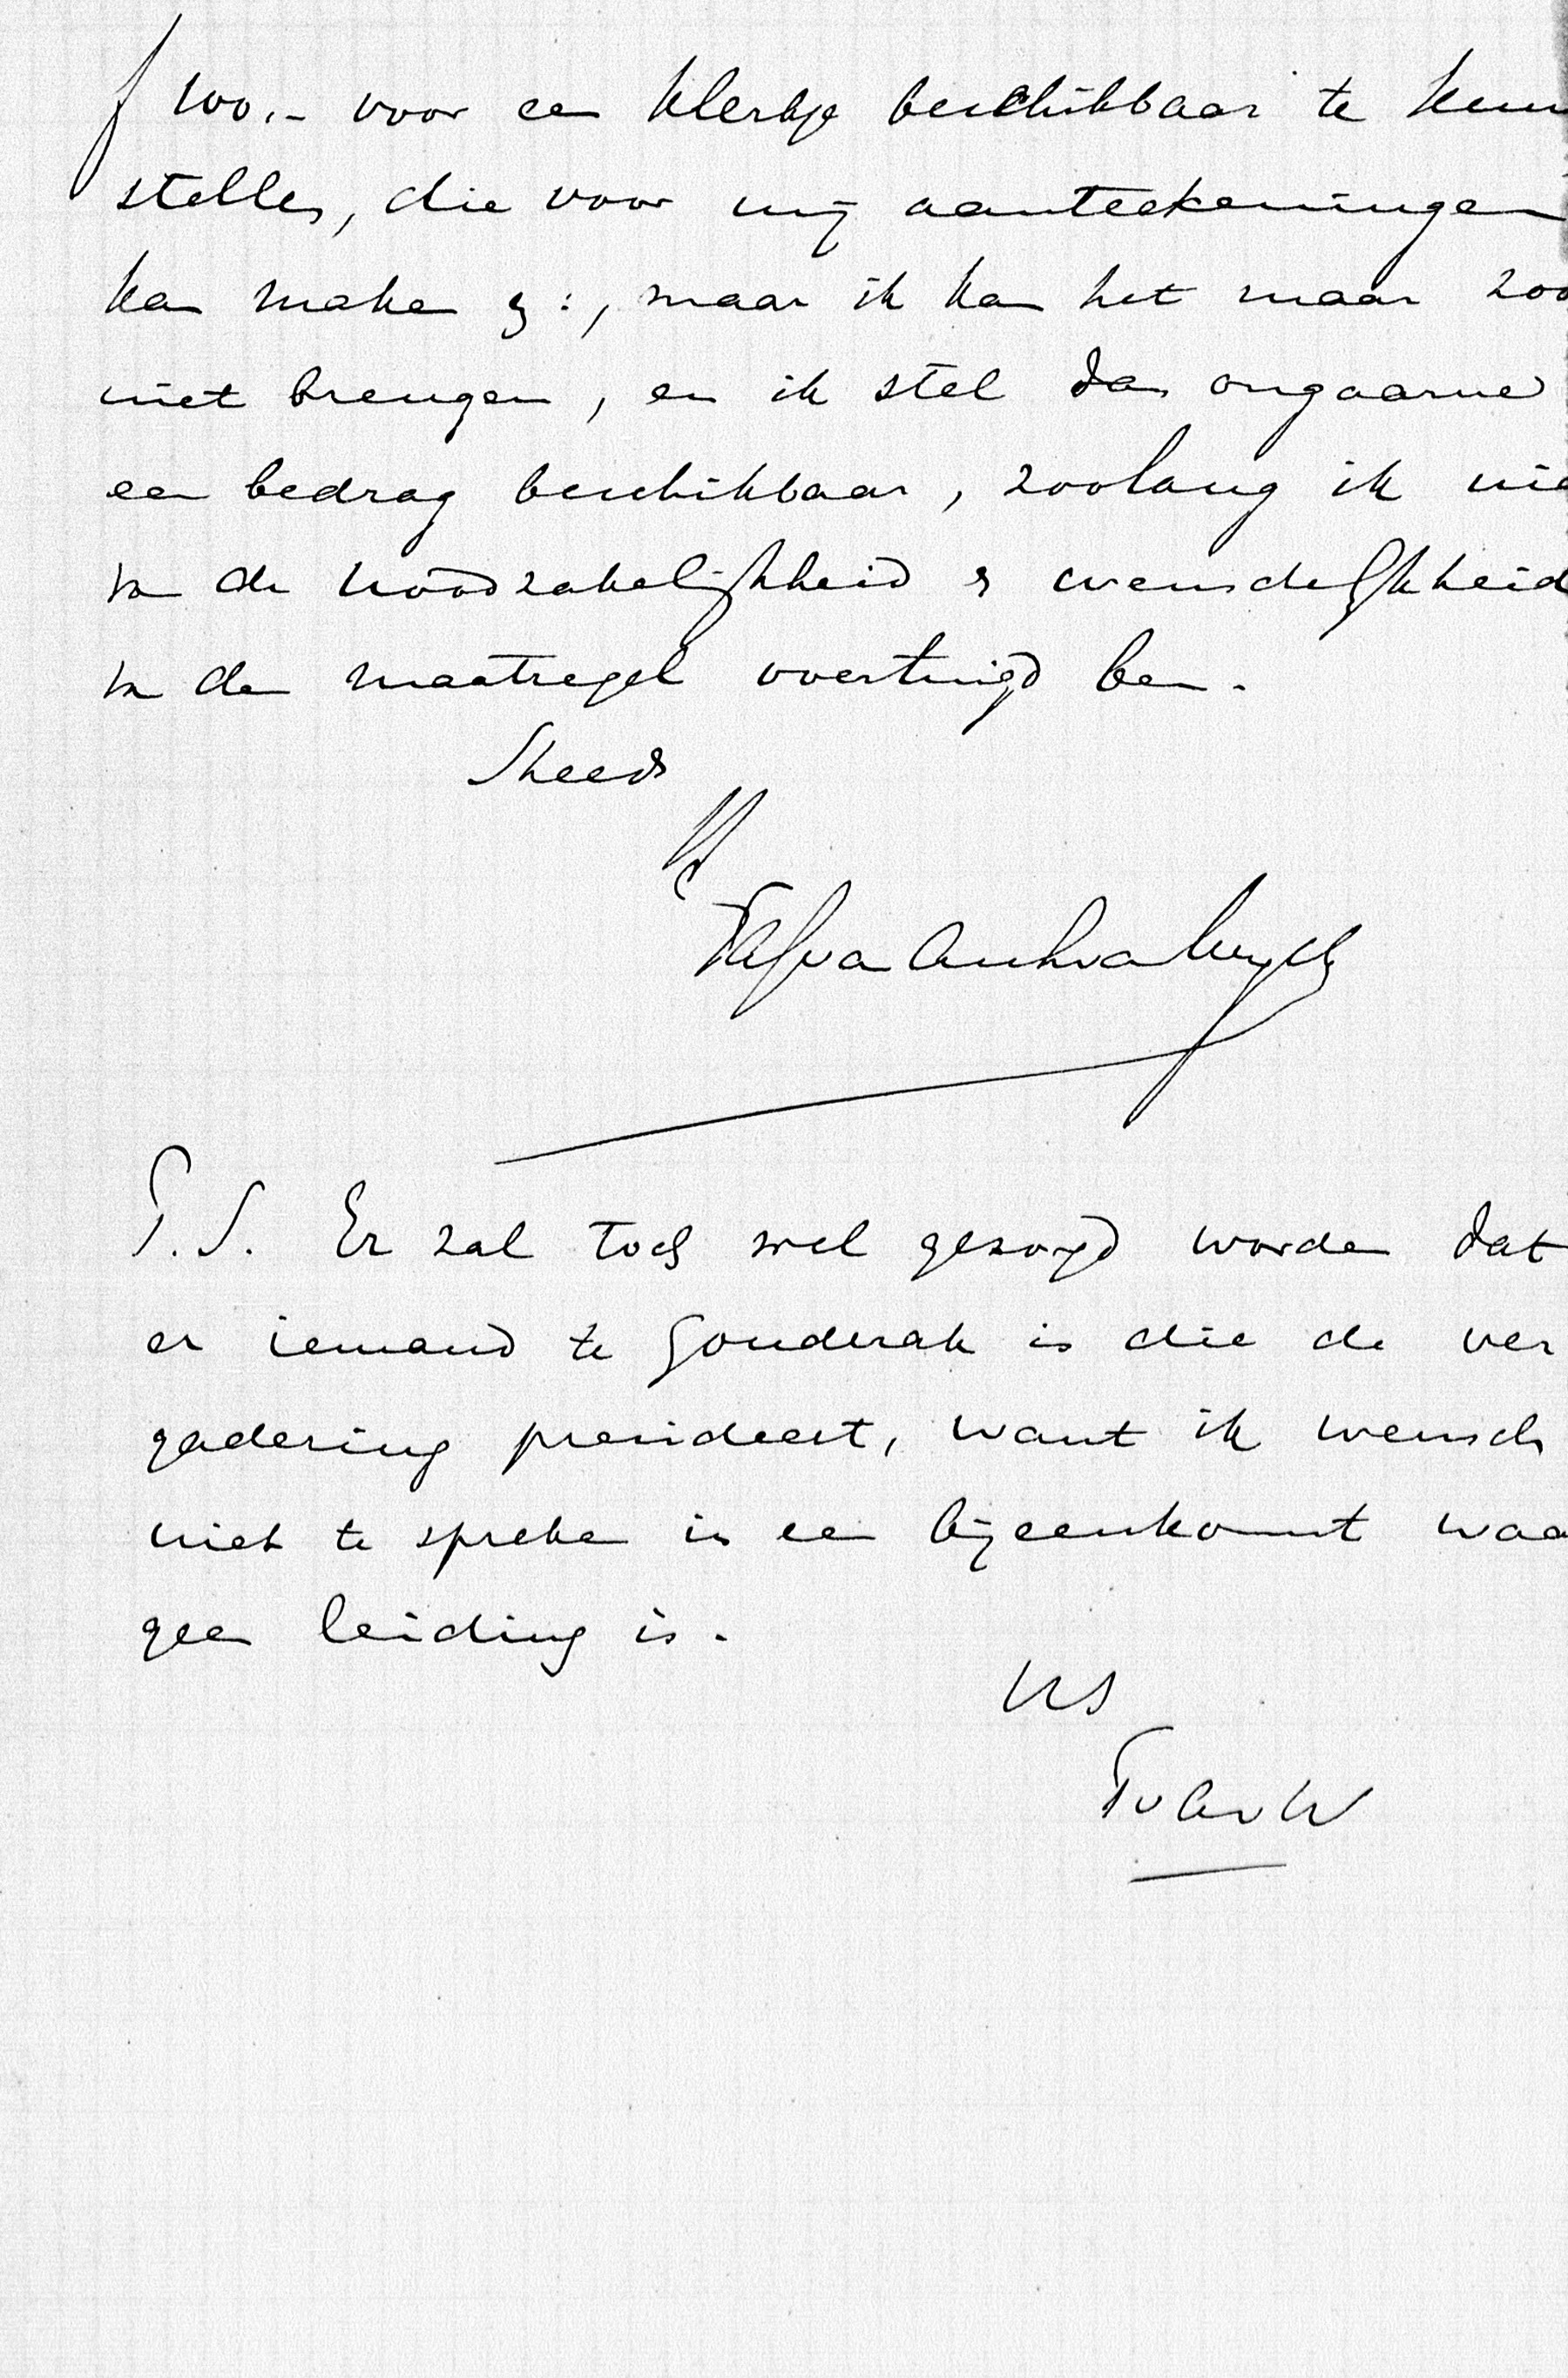 f 100.- voor een klerkje beschikbaar te kun
stellen, die voor mij aanteekeningen
kan maken &:, maar ik kan het maar zoo
niet brengen, en ik stel dan ongaarne
een bedrag beschikbaar, zoolang ik nie
van de noodzakelijkheid & wenschelijkheid
van den maatregel overtuigd ben.
Steeds
P.S. Er zal toch wel gezorgd worden dat
er iemand te Gouderak is die de ver
gadering presideert, want ik wensch
niet te spreken in een bijeenkomst waa
geen leiding is.
TvAvW